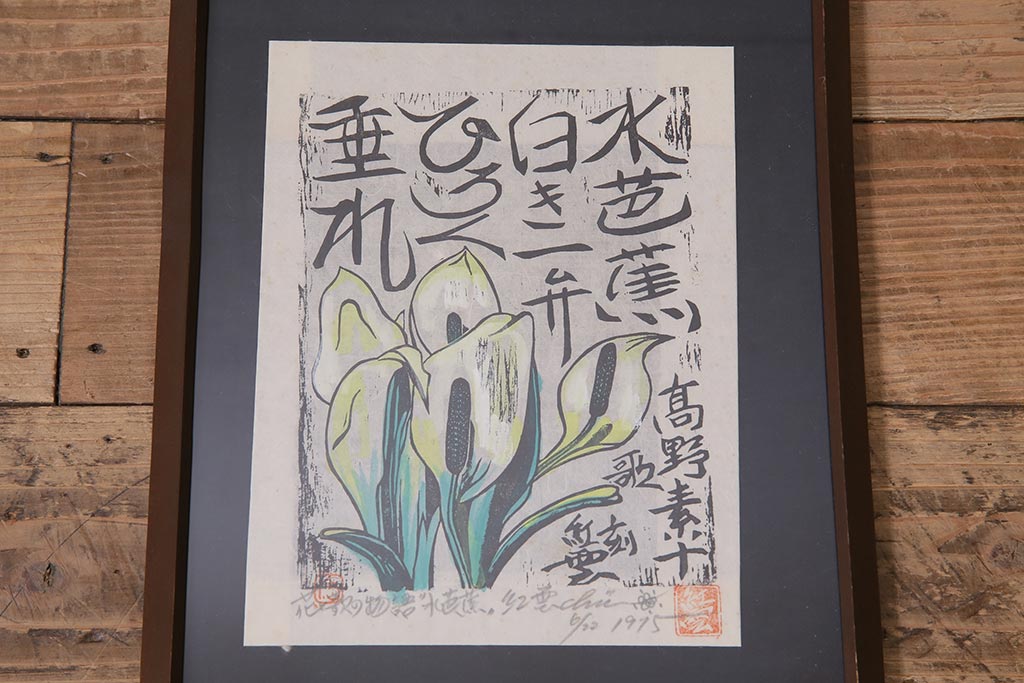 水芭蕉
白き一弁
ひろく
垂れ
高野素十
歌
刻
紅雲
水芭蕉
紅雲
6/20 1975